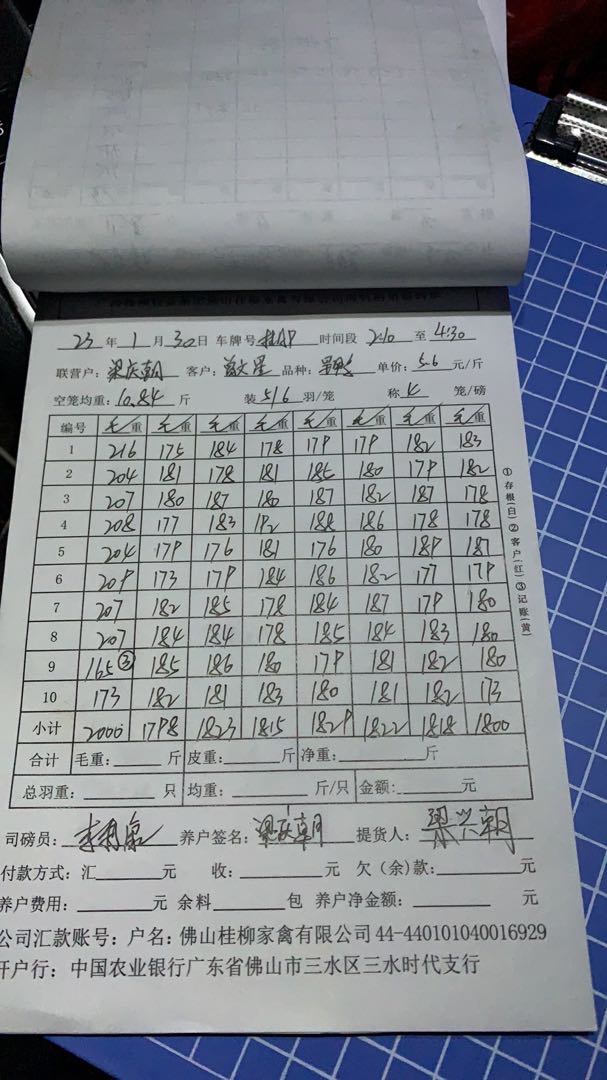 23 年 1 月 30 日 车牌号 时间段 2:10 至 4:30
联营户：梁庆朝 客户： 品种： 单价：5.6 元/斤
空笼均重：10.84 斤 装 5/6 羽/笼 称 4 笼/磅
编号 毛重 毛重 毛重 毛重 毛重 毛重 毛重 毛重
1 216 175 184 178 179 179 182 183
2 204 181 178 181 185 180 179 182
3 207 180 187 180 187 182 187 178
4 208 177 183 192 188 186 178 178
5 204 179 176 181 176 180 189 187
6 209 173 179 184 186 182 177 179
7 207 182 185 178 184 187 179 180
8 207 184 184 178 185 184 183 180
9 165③ 185 186 180 179 181 182 180
10 173 182 181 183 180 181 182 173
小计 2000 1798 1823 1815 1829 1822 1818 1800
合计 毛重： 斤 皮重： 斤 净重： 斤
总羽重： 只 均重： 斤/只 金额： 元
①存根(白)②客户(红)③记账(黄)
司磅员： 养户签名：梁庆朝 提货人：梁兴朝
付款方式：汇 元 收： 元 欠（余）款： 元
养户费用： 元 余料 包 养户净金额： 元
公司汇款账号：户名：佛山桂柳家禽有限公司 44-440101040016929
开户行：中国农业银行广东省佛山市三水区三水时代支行